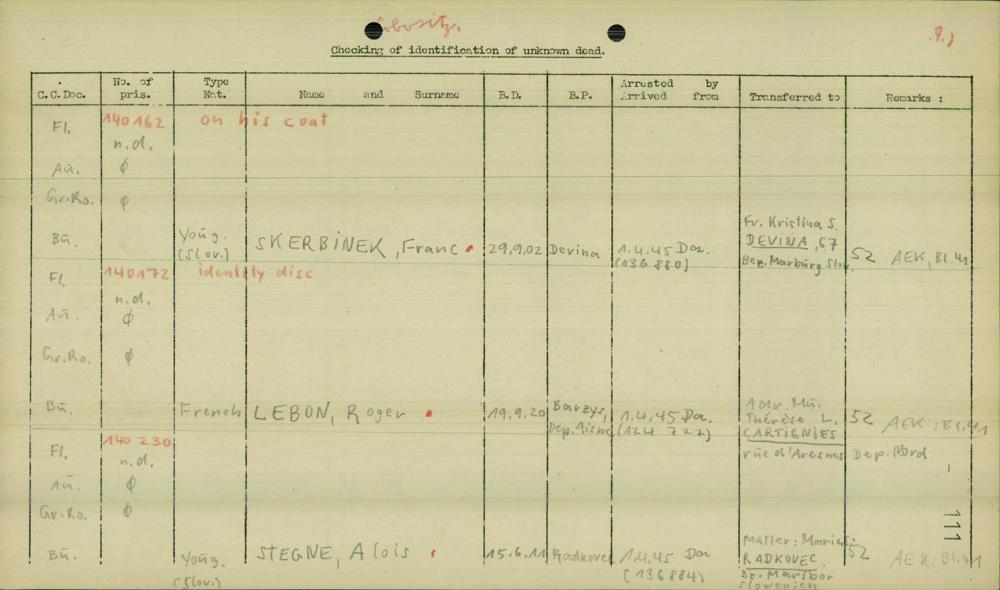 9.)
Checking of identification of unknown dead.
C.C.Doc. No. of pris. Type Nat. Name and Surname B.D. B.P. Arrested by Arrived from Transferred to Remarks :
Fl. 140162 on his coat
n.d.
Au. ϕ
Gr.Ro. ϕ
Fr. Kristina S.
Bu. Yoúg. SKERBINEK, Franc 29.9.02 Devina 1.4.45 Da. DEVINA, 67 52 AEK, Bl.41
(Slov.) (136 880) Bez. Marburg Slow.
Fl. 140172 identity disc
n.d.
Au. ϕ
Gr.Ro. ϕ
Bu. French LEBON, Roger 19.9.20 Barzys, 1.4.45 Da. Adr. Mu. 52 AEK: Bl.41
Dep. Aisne (124 722) Thérèse L.
CARTIGNIES
Fl. 140 230 rue d'Avesnes Dep. Nord
n.d.
Au. ϕ
Gr.Ro. ϕ
111
Bu. Yoúg. STEGNE, Alois 15.6.11 Radkovec 1.4.45 Da Matter: Maria: 52 AEK: Bl.41
(Slov.) (136884) RADKOVEC
Bz. Maribor
Slowenien